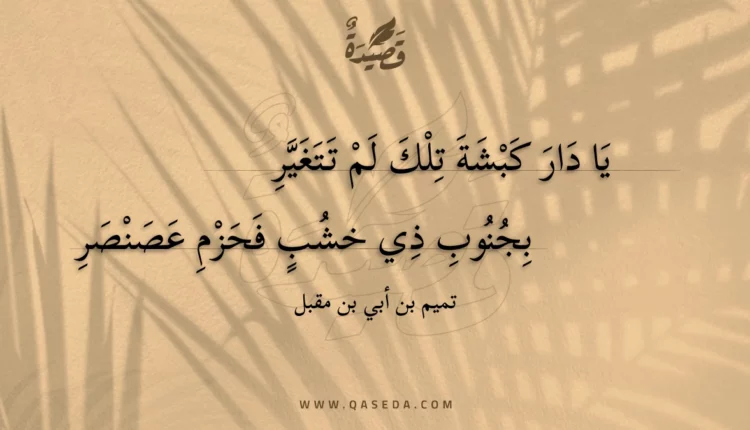 قَصِيْدَةٌ
يَا دَارَ كَبْشَةَ تِلْكَ لَمْ تَتَغَيَّرِ
بِجُنُوبِ ذِي خشُبٍ فَحَزْمِ عَصَنْصَرِ
تميم بن أبي بن مقبل
WWW.QASEDA.COM